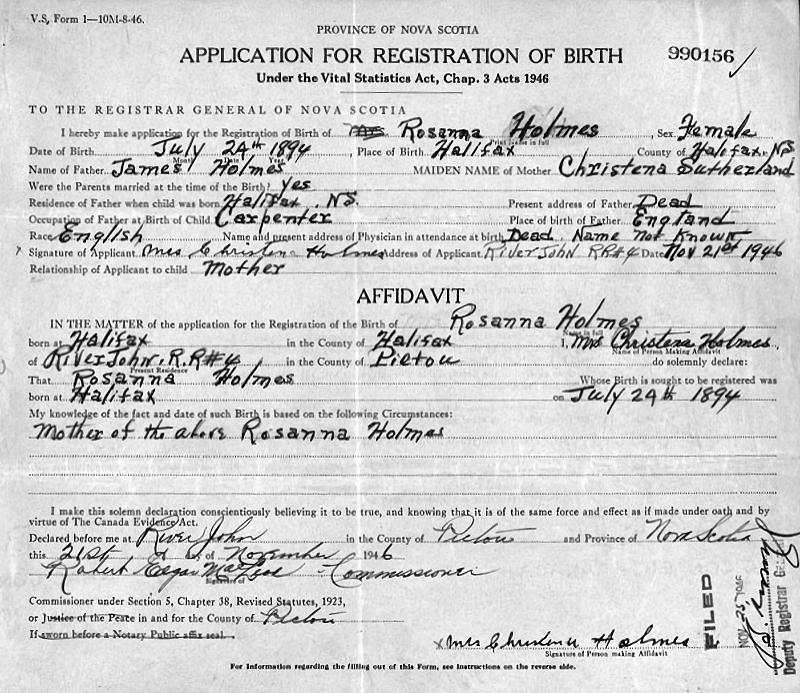 V.S. Form 1—10M-8-46.
PROVINCE OF NOVA SCOTIA
APPLICATION FOR REGISTRATION OF BIRTH
990156
Under the Vital Statistics Act, Chap. 3 Acts 1946
TO THE REGISTRAR GENERAL OF NOVA SCOTIA
I hereby make application for the Registration of Birth of Mrs Rosanna Holmes, Sex Female
Print name in full
Date of Birth July 24th 1894, Place of Birth Halifax County of Halifax. N.S
Month Date Year
Name of Father James Holmes MAIDEN NAME of Mother Christena Sutherland
Were the Parents married at the time of the Birth? Yes
Residence of Father when child was born Halifax. N.S. Present address of Father Dead
Occupation of Father at Birth of Child Carpenter Place of birth of Father England
Race English Name and present address of Physician in attendance at birth Dead. Name not Known
x Signature of Applicant Mrs Christena Holmes Address of Applicant River John RR#4 Date Nov 21st 1946
Relationship of Applicant to child Mother
AFFIDAVIT
IN THE MATTER of the application for the Registration of Birth of Rosanna Holmes
Name in full
born at Halifax in the County of Halifax I, Mrs Christena Holmes
Name of Person Making Affidavit
of River John. R.R#4 in the County of Pictou do solemnly declare:
Present Residence
That Rosanna Holmes Whose Birth is sought to be registered was
born at Halifax on July 24th 1894
My knowledge of the fact and date of such Birth is based on the following Circumstances:
Mother of the above Rosanna Holmes
I make this solemn declaration conscientiously believing it to be true, and knowing that it is of the same force and effect as if made under oath and by
virtue of The Canada Evidence Act.
Declared before me at River John in the County of Pictou and Province of Nova Scotia
this 21st day of November 1946
Robert Edgar MacLeod Commissioner
Signature of
Commissioner under Section 5, Chapter 38, Revised Statutes, 1923,
or Justice of the Peace in and for the County of Pictou
If sworn before a Notary Public affix seal.
x Mrs Christena Holmes
Signature of Person making Affidavit
FILED
NOV 25 1946
Deputy Registrar
For Information regarding the filling out of this Form, see Instructions on the reverse side.